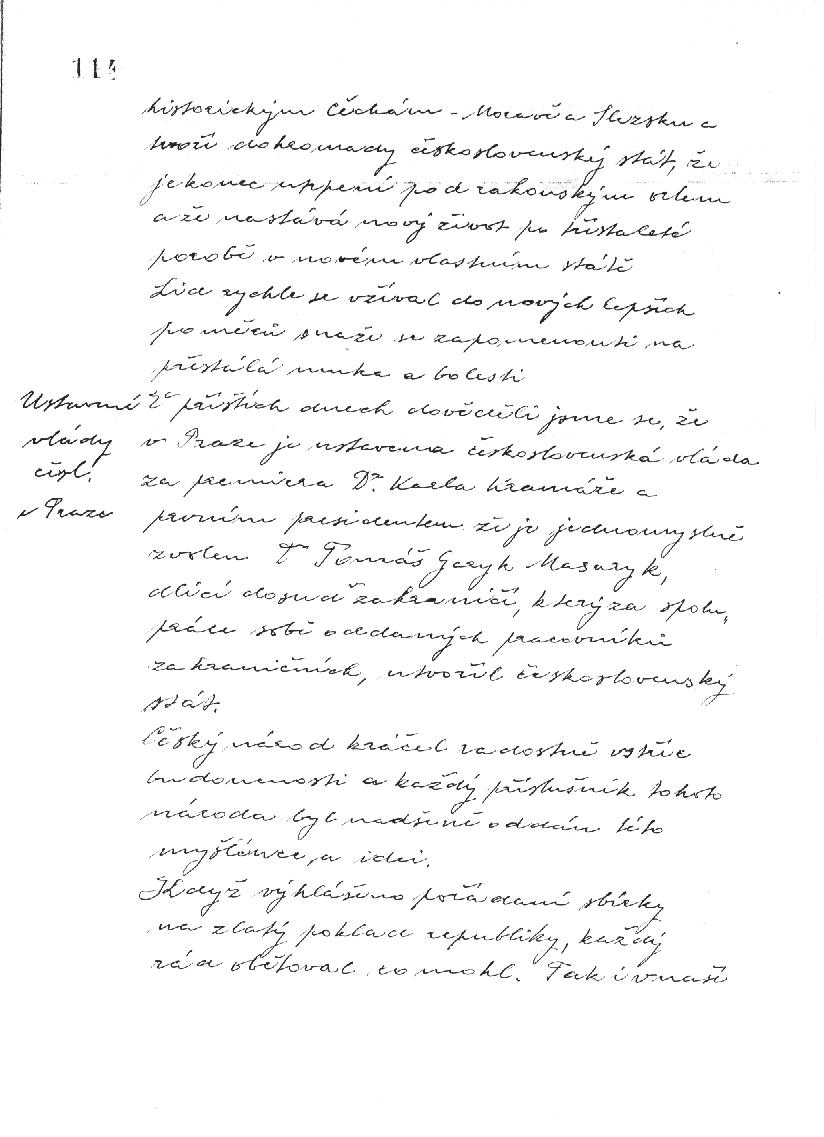 114
historickým Čechám - Moravě a Slezsku a
tvoří dohromady československý stát, že
je konec úppení pod rakouským orlem
a že nastává nový život po třístaleté
porobě v novém vlastním státě
Lid rychle se vžíval do nových lepších
poměrů snaže se zapomenouti na
přestálá muka a bolesti
Ustavení
vlády
čsl.
v Praze
V příštích dnech dověděli jsme se, že
v Praze je ustavena československá vláda
za premiera Dr. Karla Kramáře a
prvním presidentem že je jednomyslně
zvolen Tomáš Garyk Masaryk,
dlící dosud za hranicí, který za spolu„
práce sobě oddaných pracovníků
zahraničních, utvořil československý
stát.
Český národ kráčel radostně vstříc
budoucnosti a každý příslušník tohoto
národa byl nadšeně oddán této
myšlénce, a idei.
Když výhlášeno pořádaní sbírky
na zlatý poklad republiky, každý
rád obětoval co mohl. Tak i v naší